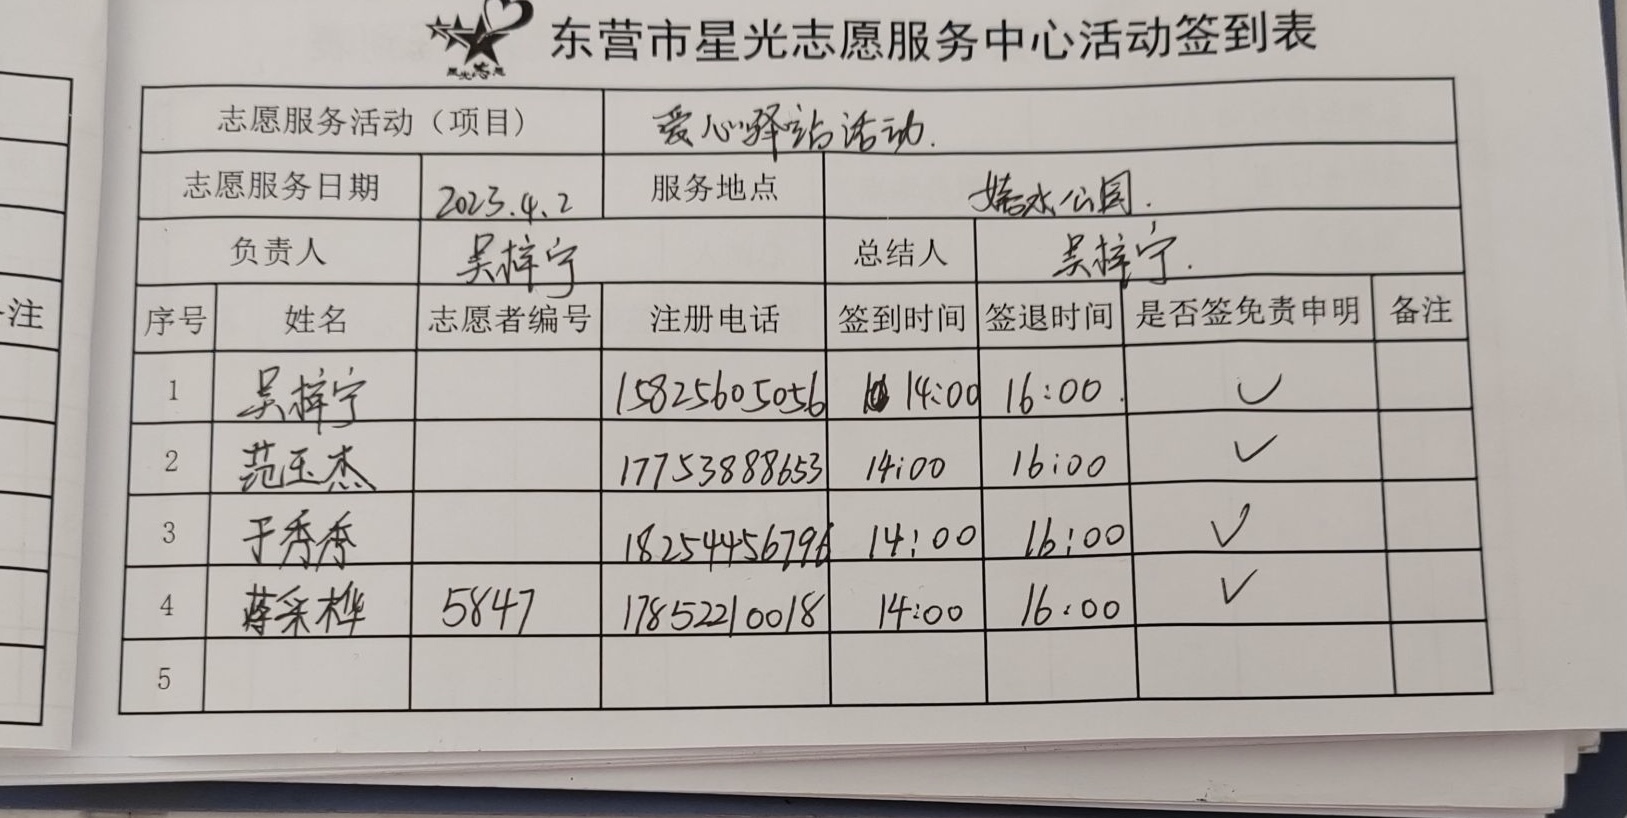 星光志愿
东营市星光志愿服务中心活动签到表
志愿服务活动（项目） 爱心驿站活动.
志愿服务日期 2023.4.2 服务地点 嬉水公园.
负责人 吴梓宁 总结人 吴梓宁.
序号 姓名 志愿者编号 注册电话 签到时间 签退时间 是否签免责申明 备注
1 吴梓宁 15825605056 14:00 16:00 ✓
2 范玉杰 17753888653 14:00 16:00 ✓
3 于秀秀 18254456796 14:00 16:00 ✓
4 蒋采桦 5847 17852210018 14:00 16:00 ✓
5
注